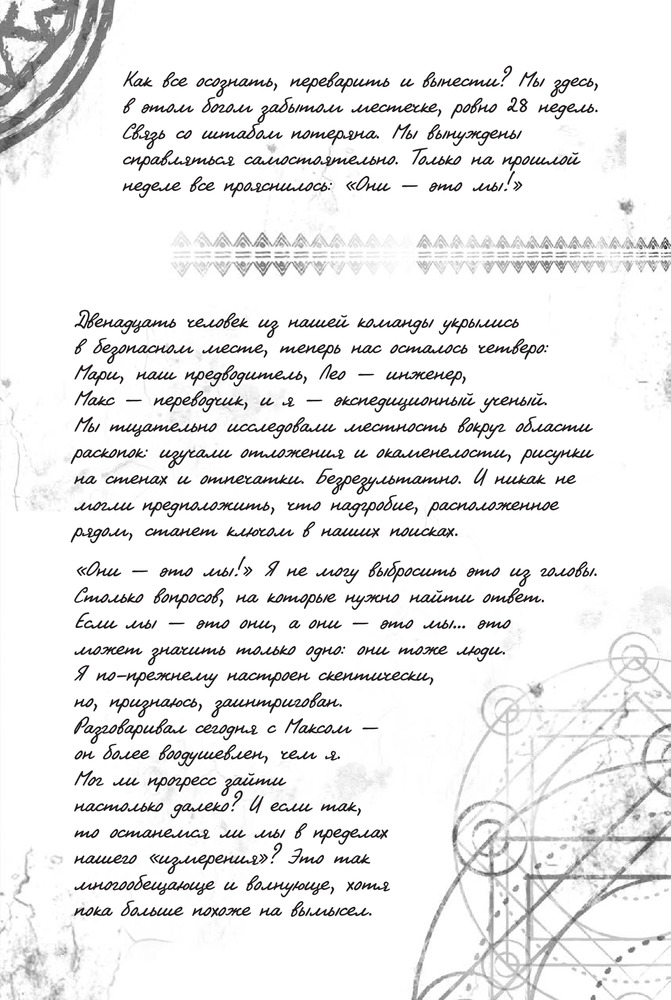 Как все осознать, переварить и вынести? Мы здесь,
в этом богом забытом местечке, ровно 28 недель.
Связь со штабом потеряна. Мы вынуждены
справляться самостоятельно. Только на прошлой
неделе все прояснилось: «Они — это мы!»
Двенадцать человек из нашей команды укрылись
в безопасном месте, теперь нас осталось четверо:
Мари, наш предводитель, Лео — инженер,
Макс — переводчик, и я — экспедиционный ученый.
Мы тщательно исследовали местность вокруг области
раскопок: изучали отложения и окаменелости, рисунки
на стенах и отпечатки. Безрезультатно. И никак не
могли предположить, что надгробие, расположенное
рядом, станет ключом в наших поисках.
«Они — это мы!» Я не могу выбросить это из головы.
Столько вопросов, на которые нужно найти ответ.
Если мы — это они, а они — это мы... это
может значить только одно: они тоже люди.
Я по-прежнему настроен скептически,
но, признаюсь, заинтригован.
Разговаривал сегодня с Максом —
он более воодушевлен, чем я.
Мог ли прогресс зайти
настолько далеко? И если так,
то останемся ли мы в пределах
нашего «измерения»? Это так
многообещающе и волнующе, хотя
пока больше похоже на вымысел.